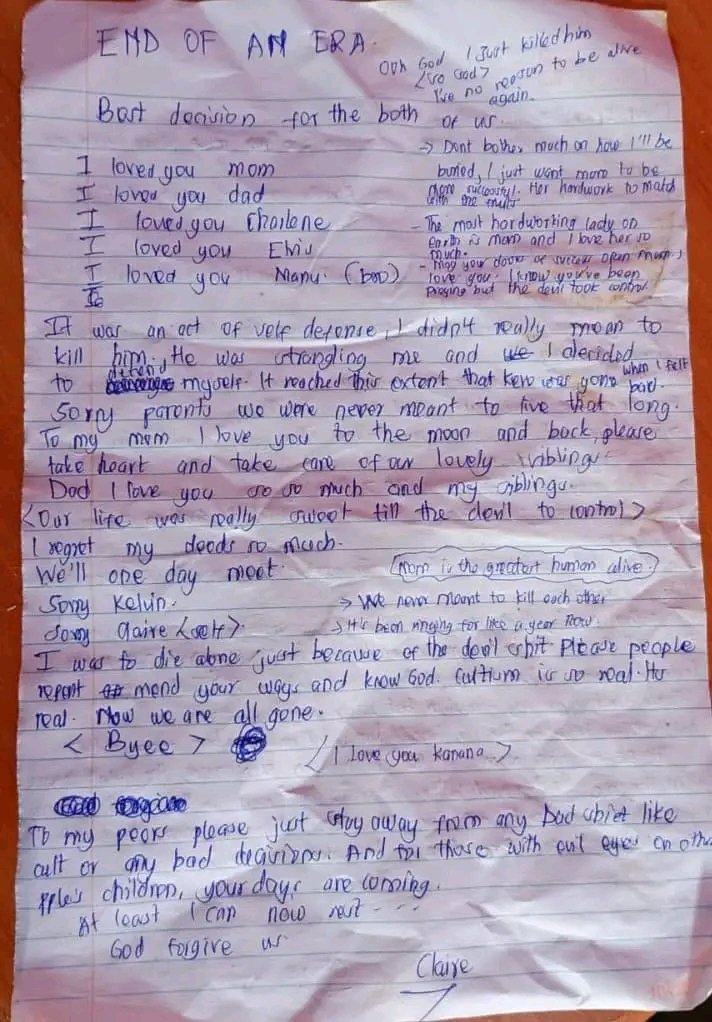 END OF AN ERA.
Ooh God I just killed him
<so sad>
I've no reason to be alive
again.
Best decision for the both of us.
I loved you mom
I loved you dad
I loved you Charlene
I loved you Elvis
I loved you Manu. (boo)
I
→ Dont bother much on how I'll be
buried, I just want mom to be
more successful. Her hardwork to match
with the fruits
- The most hardworking lady on
earth is mom and I love her so
much.
- May your doors of success open mum, I
love you. I know you've been
praying but the devil took control.
It was an act of self defense, I didn't really mean to
kill him. He was strangling me and we I decided
to defend myself. It reached this extent that kevo was gone when I felt bad.
Sorry parents we were never meant to live that long.
To my mom I love you to the moon and back, please
take heart and take care of our lovely siblings
Dad I love you so so much and my siblings.
<Our life was really sweet till the devil to control>
I regret my deeds so much.
We'll one day meet.
(Mom is the greatest human alive.)
Sorry Kelvin.
→ We never meant to kill each other
Sorry Claire <self>.
→ It's been ringing for like a year now.
I was to die alone just because of the devil spirit Please people
repent mend your ways and know God. Cultism is so real. Its
real. Now we are all gone.
< Byee >
< I love you Kanana. >
To my peers please just stay away from any bad like
cult or any bad decisions. And for those with evil eyes on
children, your days are coming.
At least I can now rest - - - .
God forgive us
Claire